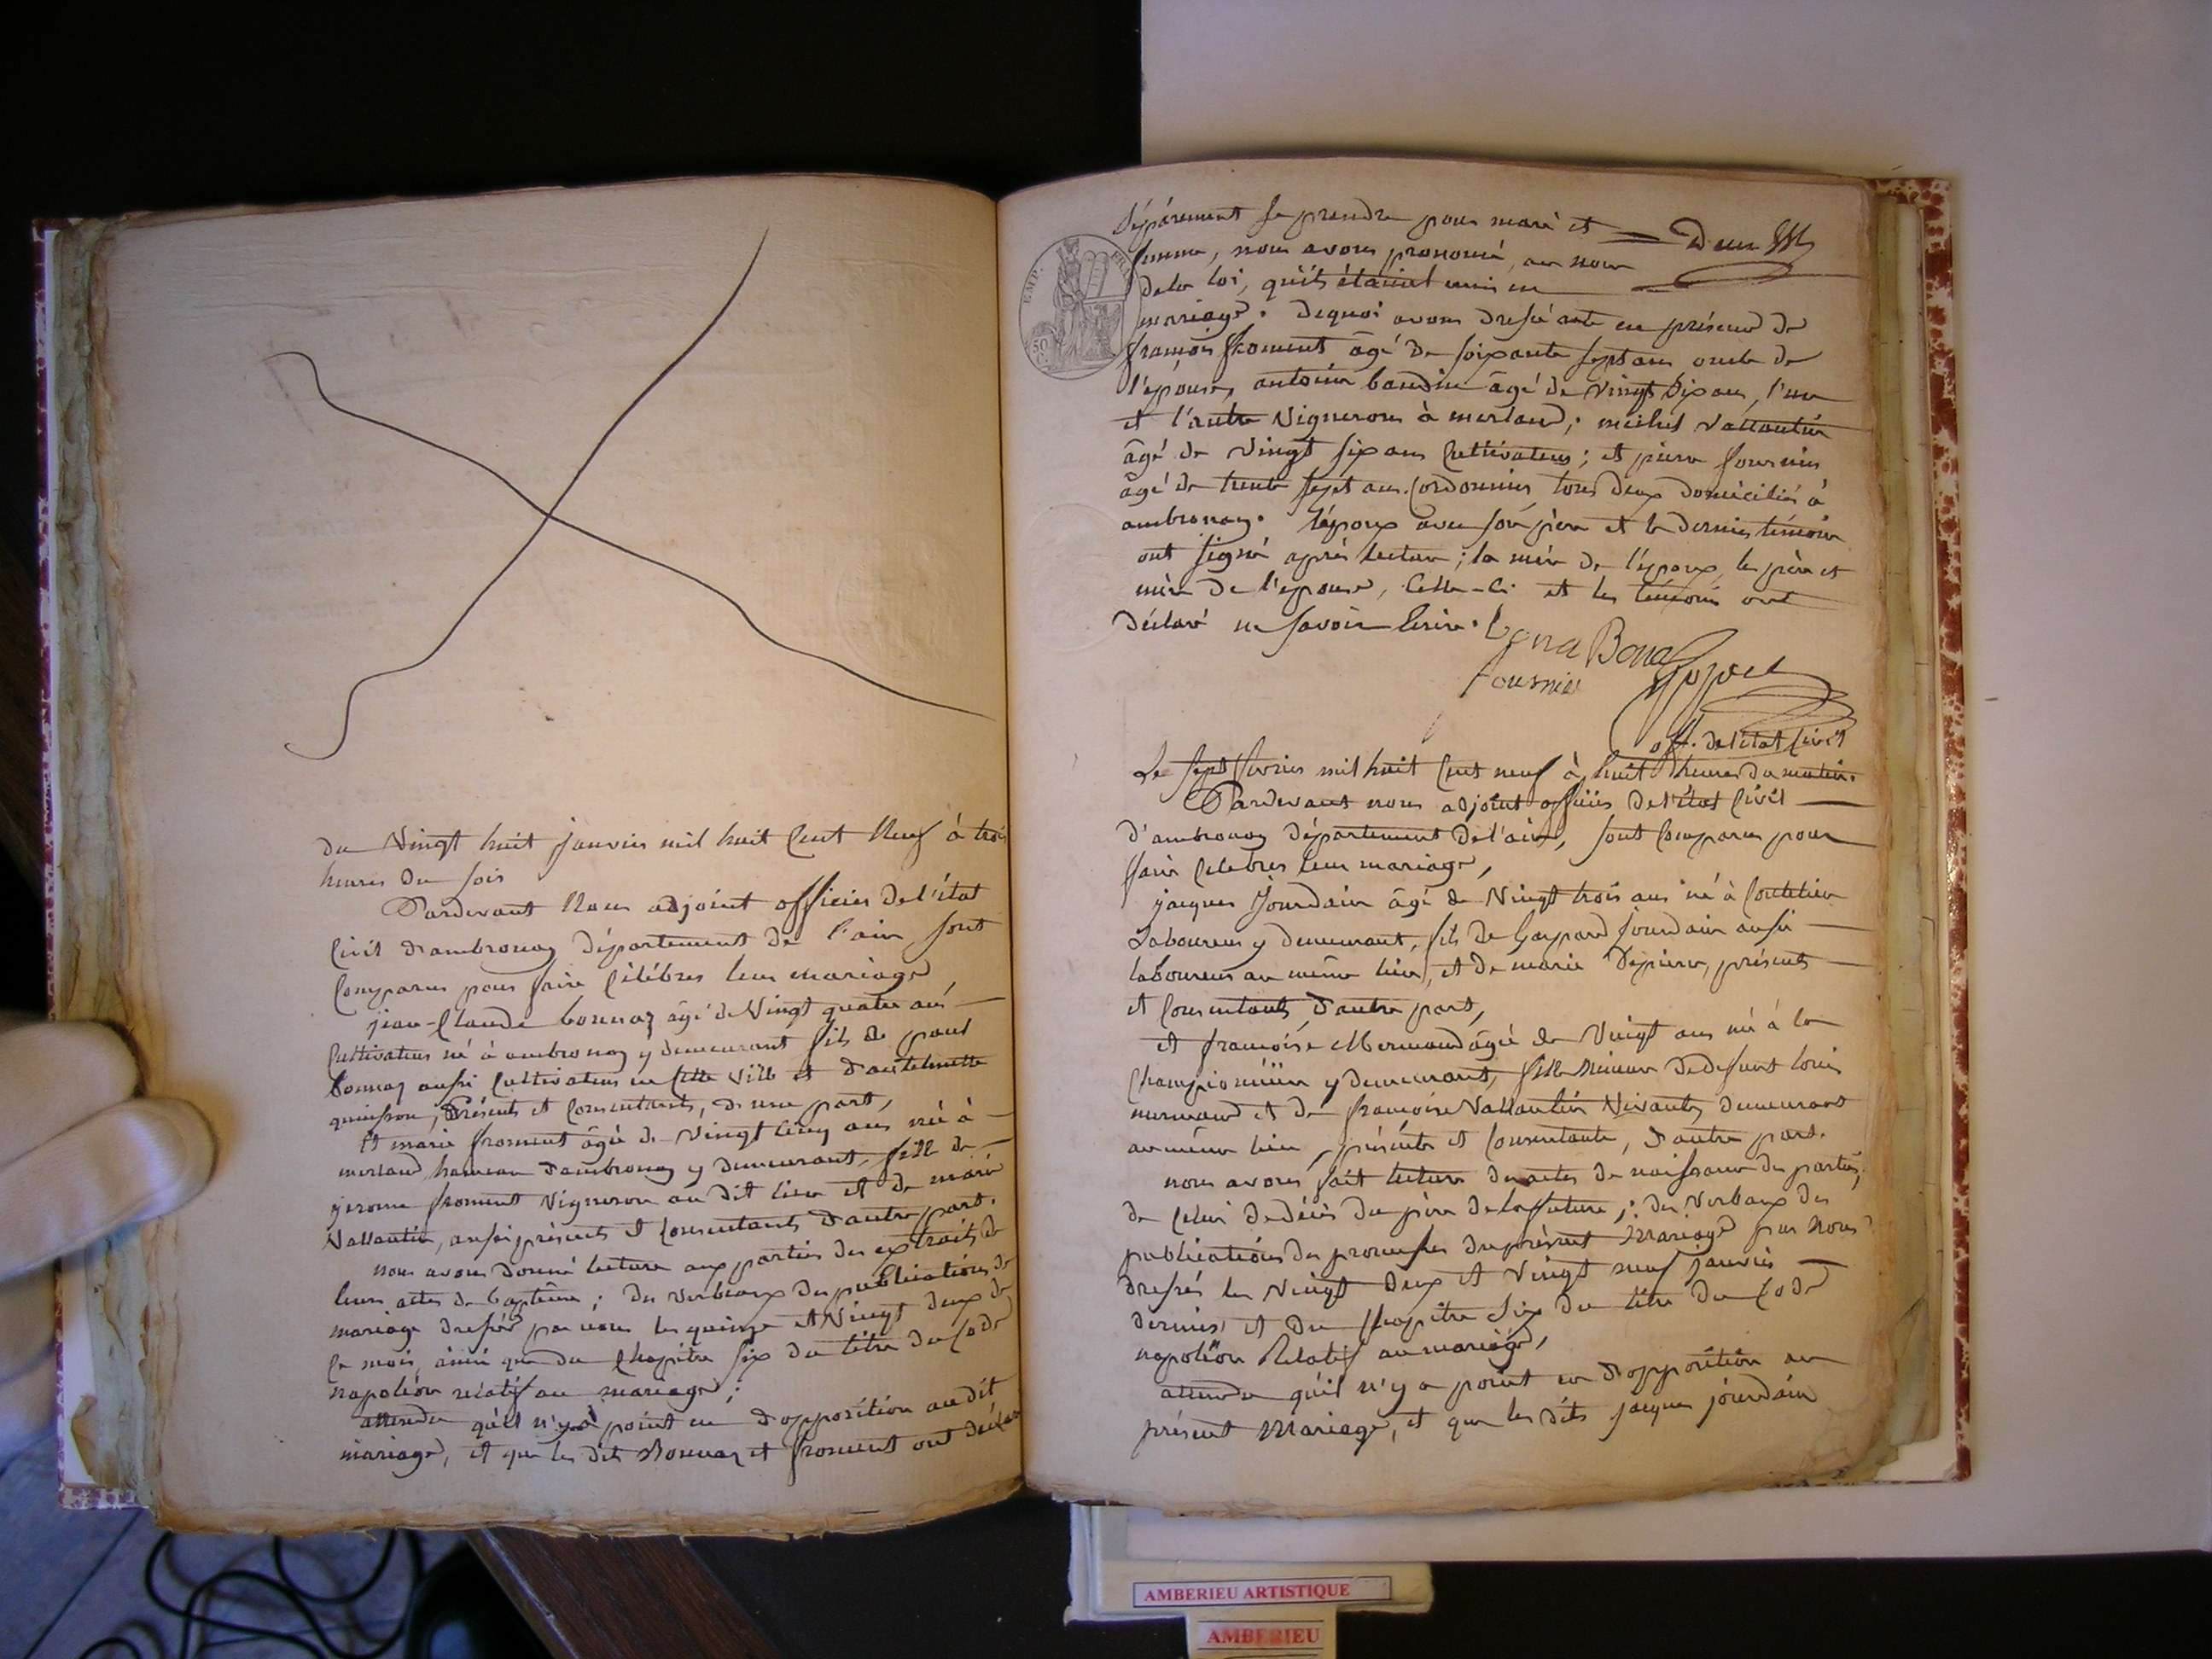 du Vingt huit janvier mil huit Cent Neuf à trois
heures du soir
Pardevant Nous adjoint officier de l'état
Civil d'ambronay département de l'ain sont
Comparus pour faire Célébrer leur mariage
jean-Claude bonnaz âgé de Vingt quatre ans
Cultivateur né à ambronay y demeurant fils de paul
bonnaz aussi Cultivateur en cette Ville et d'antelmette
quinson, présents et Consentants, d'une part,
Et marie froment âgée de Vingt Cinq ans née à
merland hameau d'ambronay y demeurant, fille de
jerome froment Vigneron au dit lieu et de marie
Vallantin, aussi présents et Consentants d'autre part.
nous avons donné lecture aux parties des extraits de
leurs actes de baptême ; des verbaux des publications de
mariage dressés par nous les quinze et Vingt deux de
Ce mois, ainsi que du Chapitre six du titre du Code
napoléon relatif au mariage ;
attendu qu'il n'y a point eu d'opposition au dit
mariage, et que les dits Bonnaz et froment ont déclaré
séparément se prendre pour mari et
femme, nous avons prononcé, au nom
de la loi, qu'ils étaient unis en
mariage. Dequoi avons dressé acte en présence de
françois froment âgé de soixante sept ans oncle de
l'épouse, antoine baudin âgé de Vingt six ans, l'un
et l'autre Vignerons à merland ; michel Vallantin
âgé de Vingt six ans Cultivateur ; et pierre fournier
âgé de trente sept ans Cordonnier, tous deux domiciliés à
ambronay. l'époux avec son père et le dernier témoin
ont signé après lecture ; la mère de l'époux, les père et
mère de l'épouse, Celle-Ci et les témoins ont
déclaré ne savoir Ecrire.
Bona
fournier
off. de l'état Civil
Le sept février mil huit Cent neuf à huit heures du matin.
Pardevant nous adjoint officier de l'état Civil
d'ambronay département de l'ain, sont Comparus pour
faire Célébrer leur mariage,
jacques Jourdain âgé de Vingt trois ans né à Coutelieu
Laboureur y demeurant, fils de Gaspard Jourdain aussi
laboureur au même lieu, et de marie Dépierre, présents
et Consentants, d'autre part,
et françoise Mermand âgée de Vingt ans née à la
Championnière y demeurant, fille Mineure de defunt louis
mermand et de françoise Vallantin Vivante, demeurant
au même lieu, présente et Consentante, d'autre part.
nous avons fait lecture des actes de naissance des parties,
de Celui de décès du père de la future ; des Verbaux des
publications des promesses du présent Mariage par Nous
dressés les Vingt deux et Vingt neuf janvier
dernier, et du Chapitre Six du titre du Code
napoléon Relatif au mariage,
attendu qu'il n'y a point eu d'opposition au
présent Mariage, et que les dits jacques jourdain
AMBERIEU ARTISTIQUE
AMBERIEU